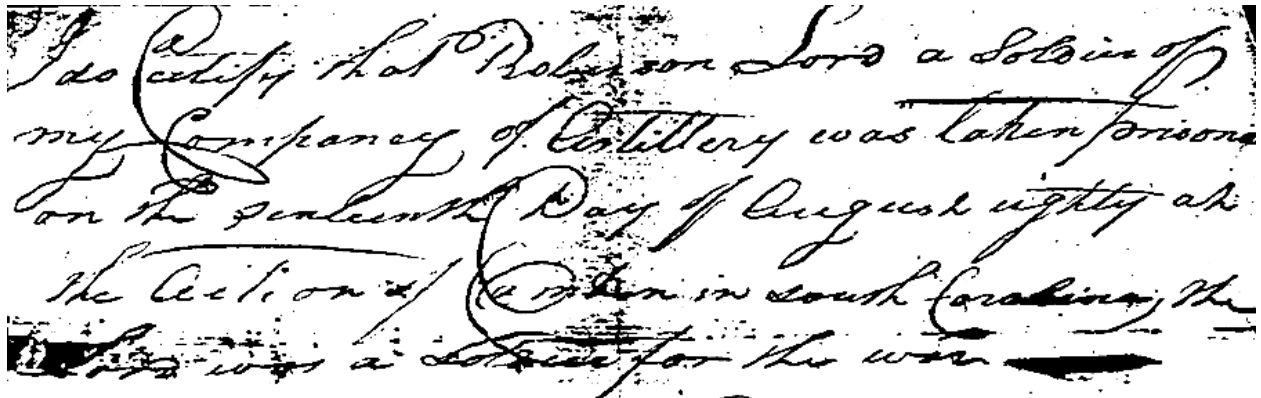 I do Certify that Robinson Lord a Soldier of
my Company of Artillery was taken prisone
on the sixteenth Day of August eighty at
the Action of Camden in South Carolina, the
Sd Lord was a Soldier for the war